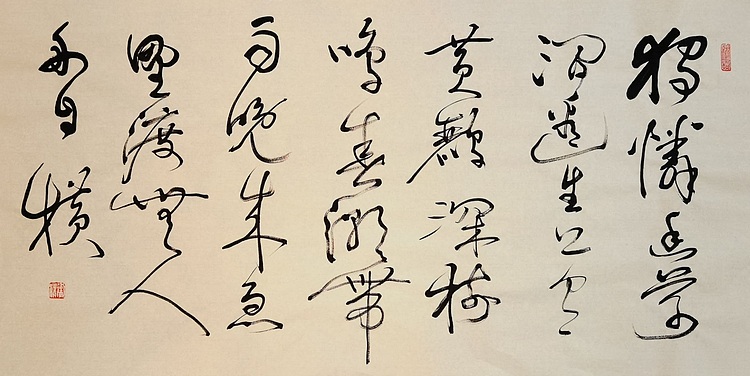 獨憐幽草
澗邊生上有
黄鸝深樹
鳴春潮帶
雨晚来急
野渡無人
舟自横